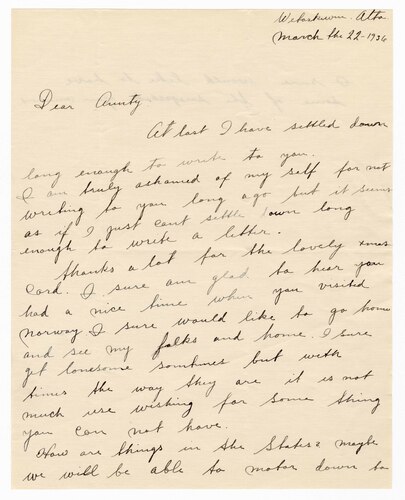 Wetaskiwin. Alta.
March the 22-1936
Dear Aunty
At last I have settled down
long enough to write to you.
I am truly ashamed of my self for not
writing to you long ago but it seems
as if I just cant settle down long
enough to write a letter.
thanks a lot for the lovely xmas
Card. I sure am glad to hear you
had a nice time when you visited
norway I sure would like to go home
and see my folks and home. I sure
get lonesome somtimes but with
times the way they are it is not
much use wishing for some thing
you can not have.
How are things in the States? maybe
we will be able to motor down to